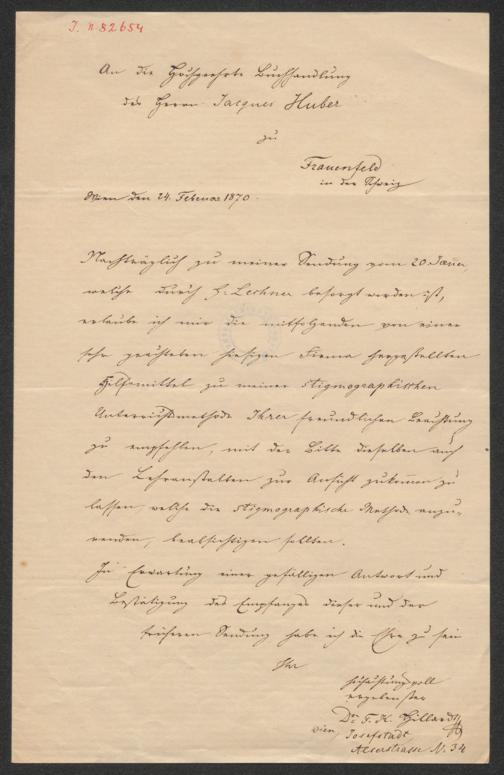 J. N. 82654
An die Hochgeehrte Buchhandlung
des Herrn Jacques Huber
zu
Frauenfeld
in der Schweiz
Wien den 24. Februar 1870.
Nachträglich zu meiner Sendung vom 20 Jänner,
welche durch H. Lechner besorgt worden ist,
erlaube ich mir die mitfolgenden von einer
sehr geachteten hiesigen Firma hergestellten
Hilfsmittel zu meiner stigmographischen
Unterrichtsmethode Ihrer freundlichen Beachtung
zu empfehlen, mit der Bitte dieselben auch
den Lehranstalten zur Ansicht zukommen zu
lassen, welche die stigmographische Methode anzu-
wenden, beabsichtigen sollten.
In Erwartung einer gefälligen Antwort und
Bestätigung des Empfanges dieser und der
früheren Sendung habe ich die Ehre zu sein
Ihr
hochachtungsvoll
ergebenster
Dr. F. K. Hillardt
Wien, Josefstadt,
Alserstrasse N. 34